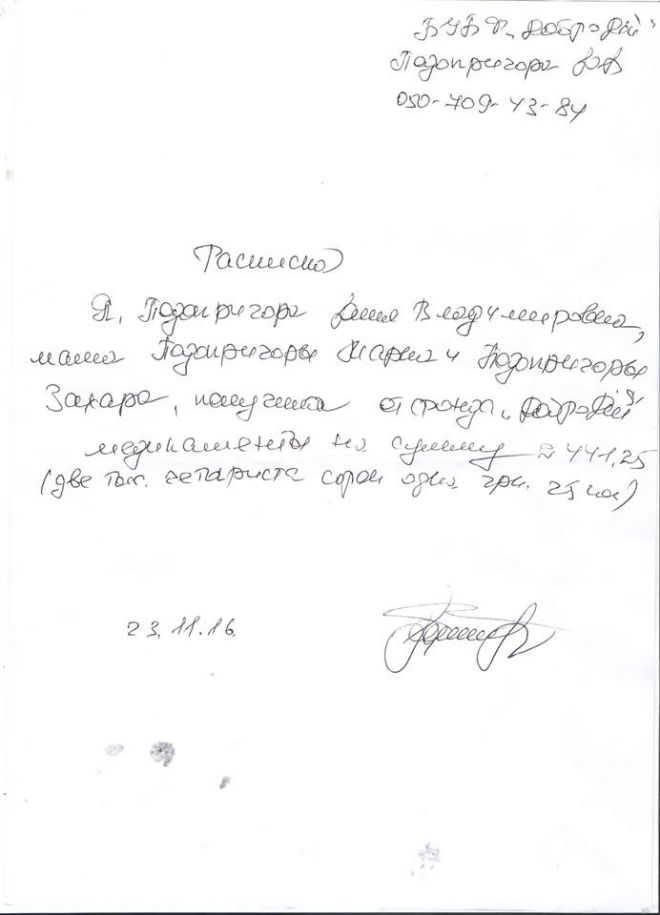 БУБФ „Добродій“
Подопригора
050-709-43-84
Расписка
Я, Подопригора Владимировна,
мама Подопригоры Марка и Подопригоры
Захара, получила от фонда „Добродій“
медикаменты на сумму 2441,25
(две тыс. четыриста сорок одна грн. 25 коп)
23.11.16.